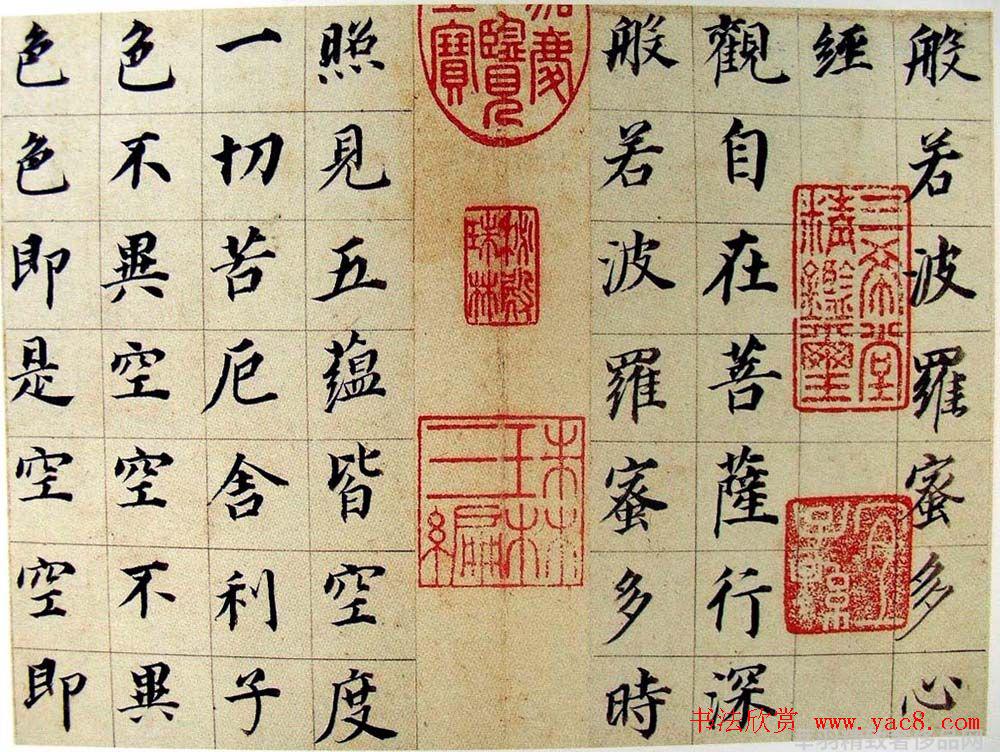 般若波羅蜜多心
經
觀自在菩薩行深
般若波羅蜜多時
照見五蘊皆空度
一切苦厄舍利子
色不異空空不異
色色即是空空即
三希堂精鑑璽
宜子孫
秘殿珠林
书法欣赏 www.yac8.com